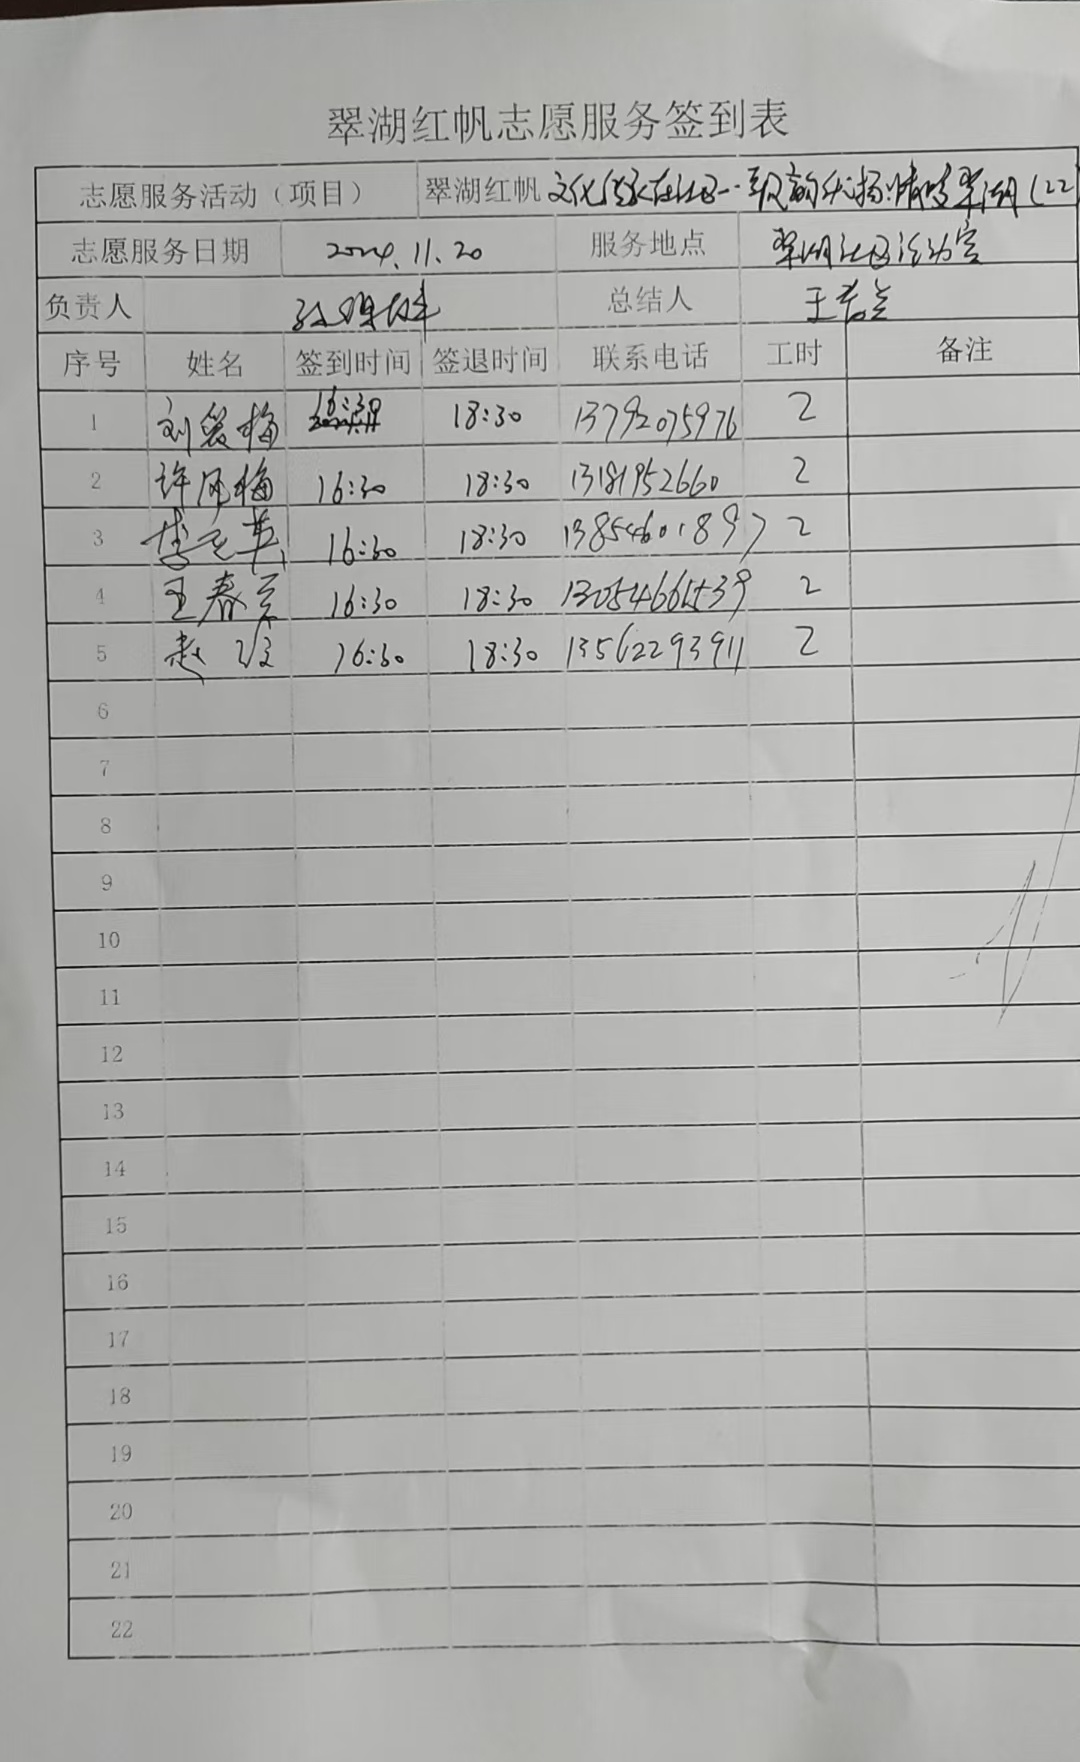 翠湖红帆志愿服务签到表
志愿服务活动（项目） 翠湖红帆 文化传承在社区 悠扬 情暖翠湖（22
志愿服务日期 2024.11.20 服务地点 翠湖社区活动室
负责人 总结人 王春兰
序号 姓名 签到时间 签退时间 联系电话 工时 备注
1 刘爱梅 16:30 18:30 13792075976 2
2 许风梅 16:30 18:30 13181952660 2
3 李 英 16:30 18:30 13854601897 2
4 王春兰 16:30 18:30 13054665539 2
5 赵 16:30 18:30 13562293911 2
6
7
8
9
10
11
12
13
14
15
16
17
18
19
20
21
22